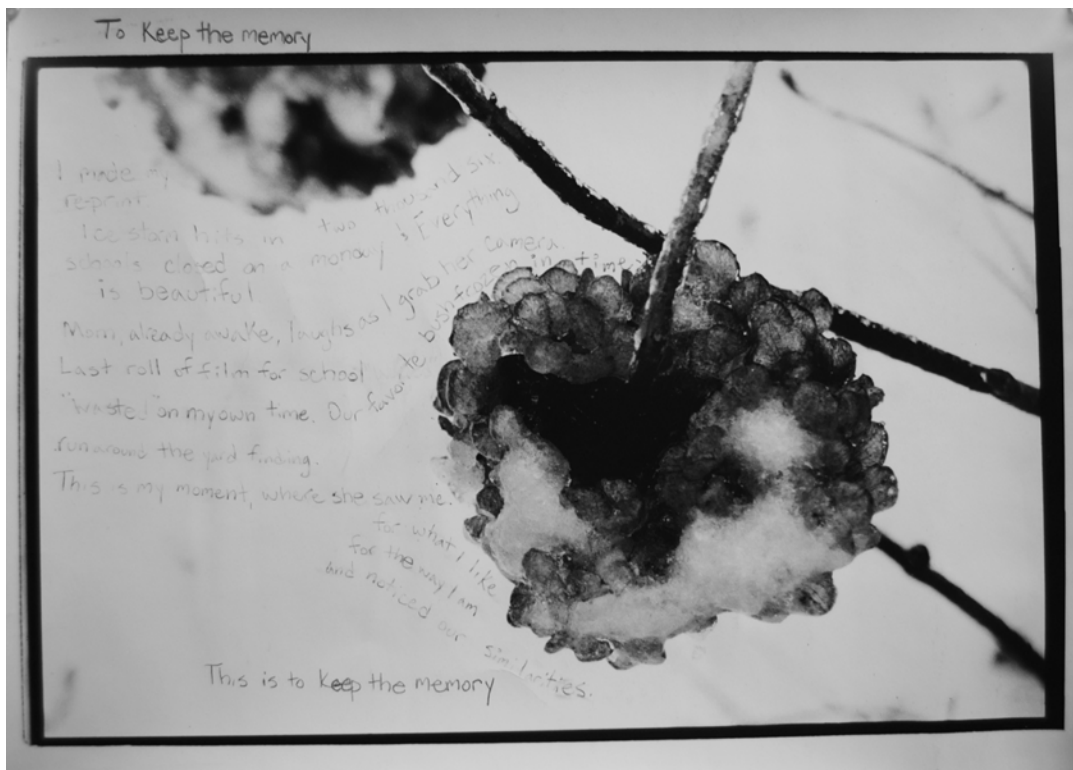 To Keep the memory
I made my
reprint.
Ice storm hits in two thousand six.
schools closed on a monday! Everything
is beautiful
Mom, already awake, laughs as I grab her camera.
Last roll of film for school
"wasted" on my own time. Our favorite bush frozen in time,
run around the yard finding.
This is my moment, where she saw me.
for what I like
for the way I am
and noticed our similarities.
This is to keep the memory